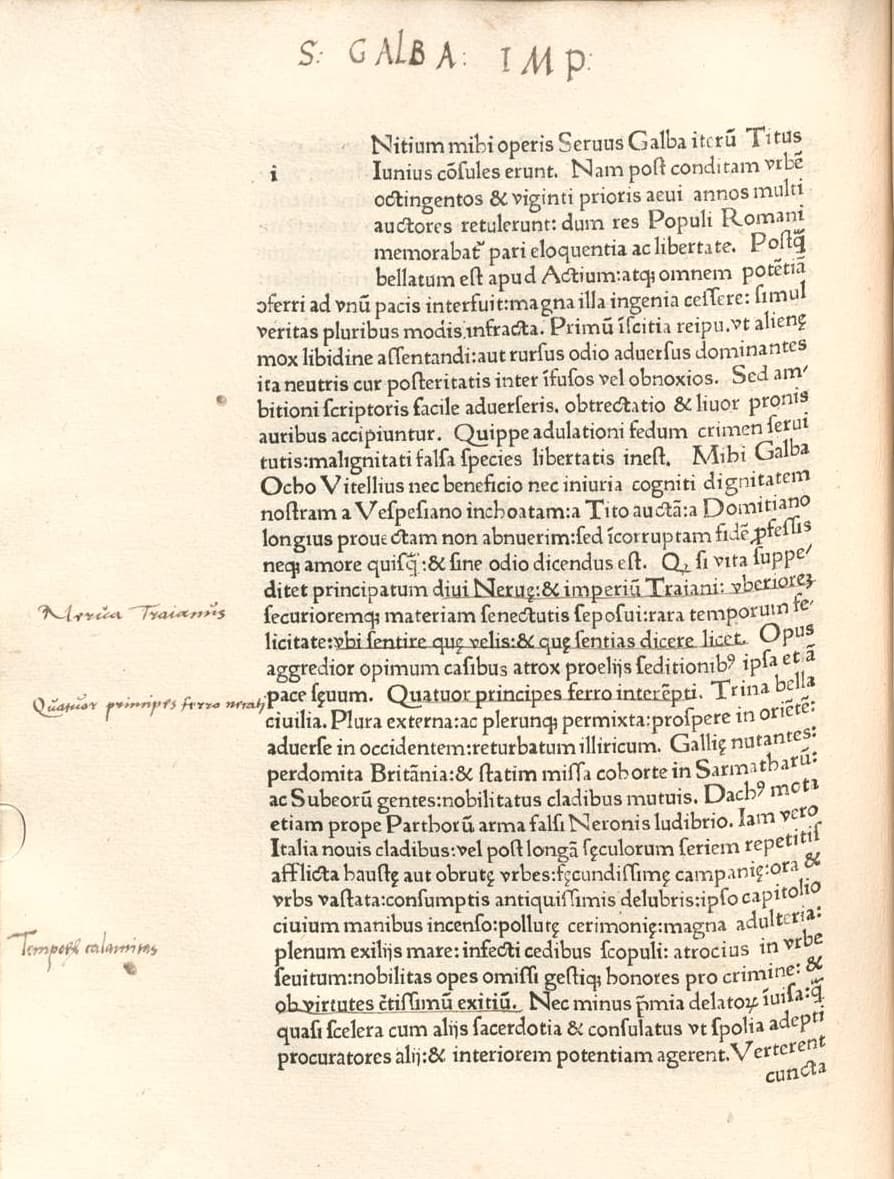 S: GALBA: IMP:
Nitium mihi operis Seruus Galba iterū Titus
i
Iunius cōsules erunt. Nam post conditam vrbē
octingentos & viginti prioris aeui annos multi
auctores retulerunt: dum res Populi Romani
memorabat᷑ pari eloquentia ac libertate. Postq̄
bellatum est apud Actium:atq; omnem potētiā
ɔferri ad vnū pacis interfuit:magna illa ingenia cessere: simul
veritas pluribus modis infracta. Primū īscitia reipu.vt alienę
mox libidine assentandi:aut rursus odio aduersus dominantes
ita neutris cur posteritatis inter īfusos vel obnoxios. Sed am-
bitioni scriptoris facile aduerseris. obtrectatio & liuor pronis
auribus accipiuntur. Quippe adulationi fedum crimen serui
tutis:malignitati falsa species libertatis inest. Mihi Galba
Ocho Vitellius nec beneficio nec iniuria cogniti dignitatem
nostram a Vespesiano inchoatam:a Tito auctā:a Domitiano
longius prouectam non abnuerim:sed īcorruptam fidē ꝓfessis
neq; amore quisq̄:& sine odio dicendus est. Q₂ si vita suppe-
ditet principatum diui Neruę:& imperiū Traiani: vberiorēꝫ
Nerua Traianus
securioremq; materiam senectutis seposui:rara temporum fe-
licitate:vbi sentire quę velis:& quę sentias dicere licet. Opus
aggredior opimum casibus atrox proelijs seditionibꝰ ipsa et ā
Quatuor principes ferro necati
pace sęuum. Quatuor principes ferro interēpti. Trina bella
ciuilia. Plura externa:ac plerunq; permixta:prospere in oriēte:
aduerse in occidentem:returbatum illiricum. Gallię nutantes:
perdomita Britānia:& statim missa cohorte in Sarmatharū:
ac Subeorū gentes:nobilitatus cladibus mutuis. Dachꝰ mota
etiam prope Parthorū arma falsi Neronis ludibrio. Iam vero
Italia nouis cladibus:vel post longā sęculorum seriem repetitis
afflicta haustę aut obrutę vrbes:fęcundissimę campanię:ora &
vrbs vastata:consumptis antiquissimis delubris:ipso capitolio
ciuium manibus incenso:pollutę cerimonię:magna adulteria:
Tempoꝝ calamitas
plenum exilijs mare: infecti cedibus scopuli: atrocius in vrbe
seuitum:nobilitas opes omissi gestiq; honores pro crimine: &
ob virtutes c̄tissimū exitiū. Nec minus p̄mia delatoꝝ īuisa:q̄
quasi scelera cum alijs sacerdotia & consulatus vt spolia adepti
procuratores alij:& interiorem potentiam agerent. Verterent
cuncta